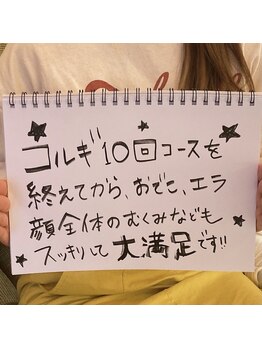 コルギ10回コースを
終えてから、おでこ、エラ
顔全体のむくみなども
スッキリして大満足です!!